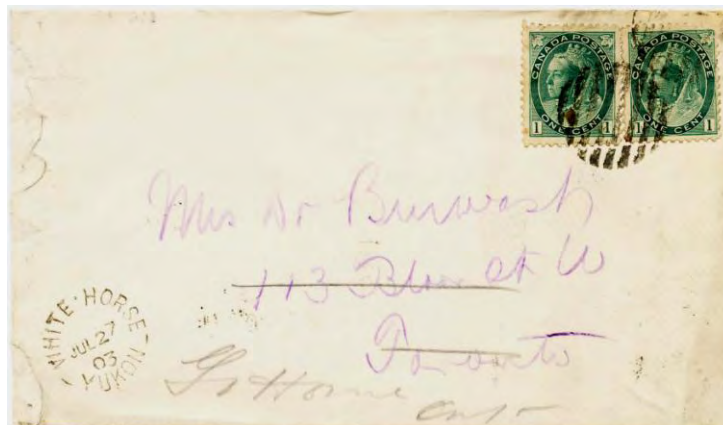 CANADA POSTAGE
1 ONE CENT 1
CANADA POSTAGE
1 ONE CENT 1
Mrs Dr Burwash
113 Bloor St W
Toronto
WHITE·HORSE·YUKON
JUL 27
03
Ont